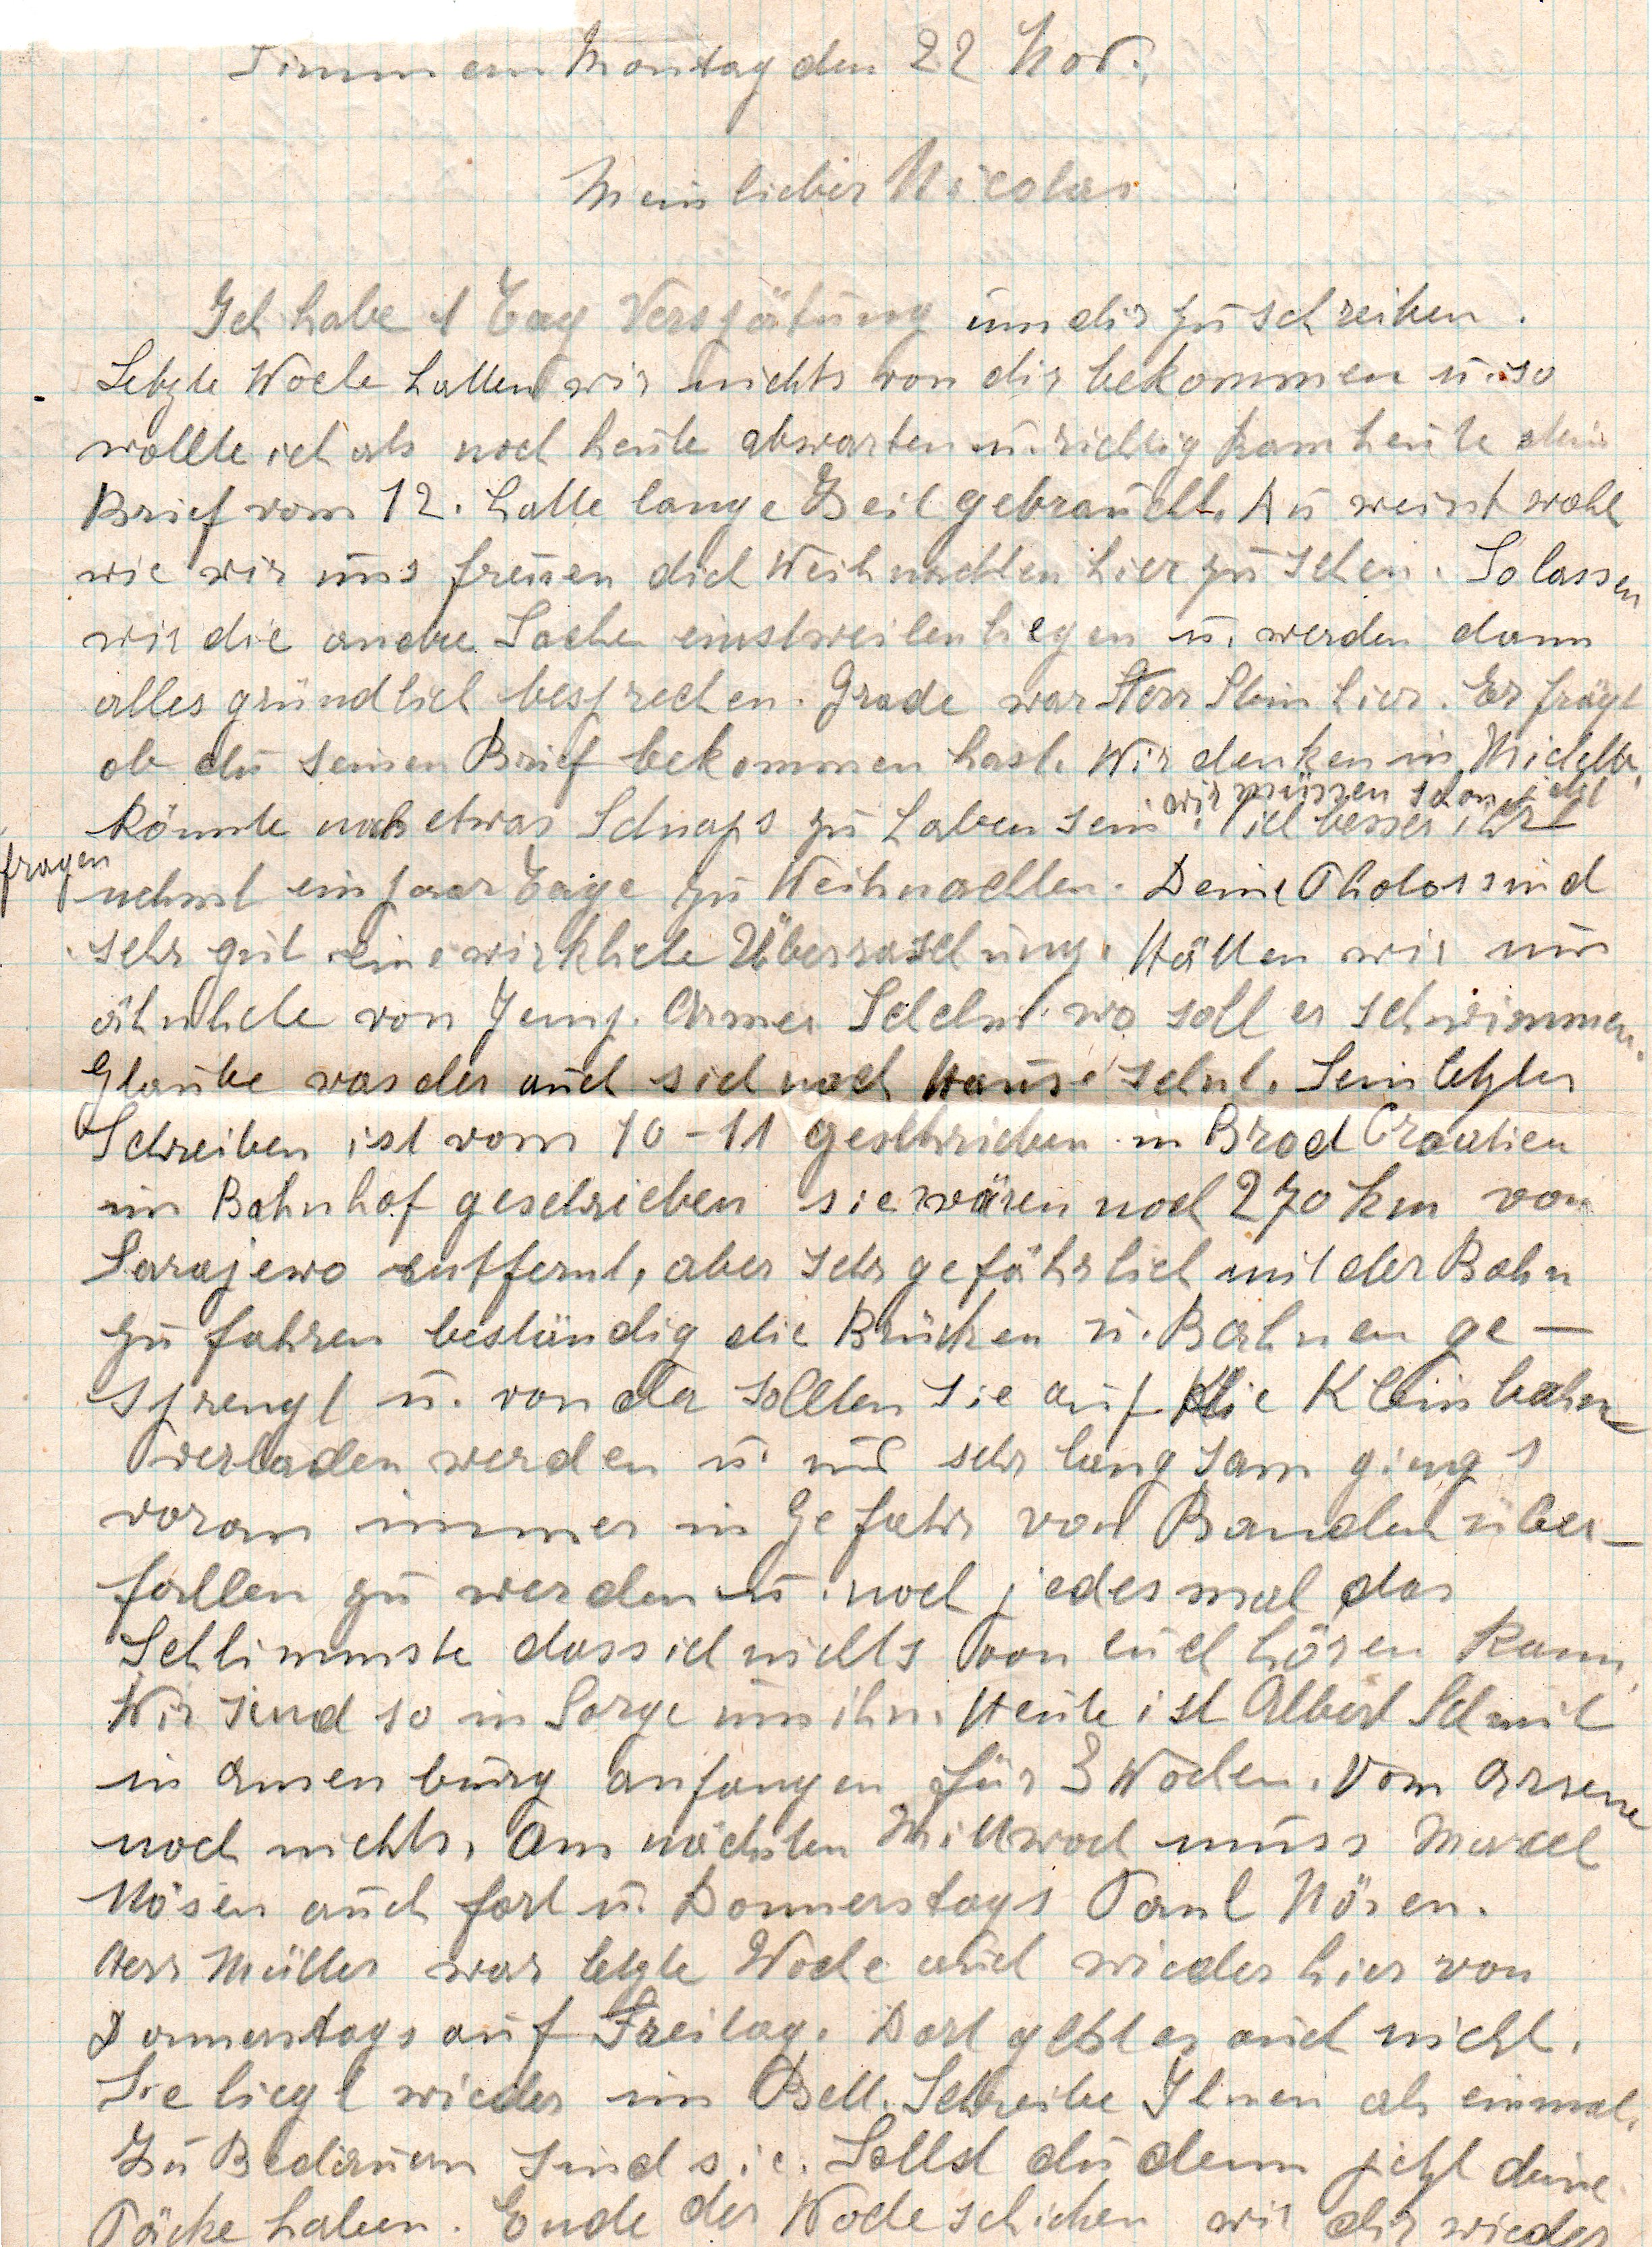 Simmern Montag den 22 Nov.
Mein lieber Nicolas
Ich habe 1 Tag Verspätung um dir zu schreiben.
Letzte Woche hatten wir nichts von dir bekommen u. so
wollte ich als noch heute abwarten u. richtig kam heute dein
Brief vom 12. hatte lange Zeit gebraucht. Du weist wohl
wie wir uns freuen dich Weihnachten hier zu sehen. So lassen
wir die andre Sache einstweilen liegen u. werden dann
alles gründlich besprechen. Grade war Herr Stein hier. Er frägt
ob du seinen Brief bekommen hast. Wir denken in
wir müssen schon jetzt
könnte noch etwas Schnaps zu haben sein. besser ihr
fragen
nehmt ein paar Tage zu Weihnachten. Deine Photos sind
sehr gut eine wirkliche Überraschung. Hätten wir nur
ähnliche von Jemp. Armer wo soll er schwimmen.
Glaube was der auch sich nach Hause sehnt. Sein letztes
Schreiben ist vom 10-11 geschrieben in Brod Croatien
im Bahnhof geschrieben sie wären noch 270 km von
Sarajewo entfernt, aber sehr gefährlich mit der Bahn
zu fahren beständig die Brücken u. Bahnen ge-
sprengt u. von da sollten sie auf die Kleinbahn
verladen werden u. nur sehr langsam gings
voran immer in Gefahr von Banden über-
fallen zu werden u. noch jedesmal das
Schlimmste dass ich nichts von euch hören kann.
Wir sind so in Sorge um ihn. Heute ist Albert Schmit
in anfangen für 3 Wochen. Vom Arsene
noch nichts. Am nächsten Mittwoch muss Marcel
Mösen auch fort u. Donnerstags Paul Nösen.
Herr Müller war letzte Woche auch wieder hier von
Donnerstags auf Freitag. Dort geht es auch nicht.
Sie liegt wieder im Bett. Schreibe Ihnen als einmal.
Zu Bedauern sind sie. Sollst du denn jetzt deine
Päcke haben. Ende der Woche schicken wir dir wieder